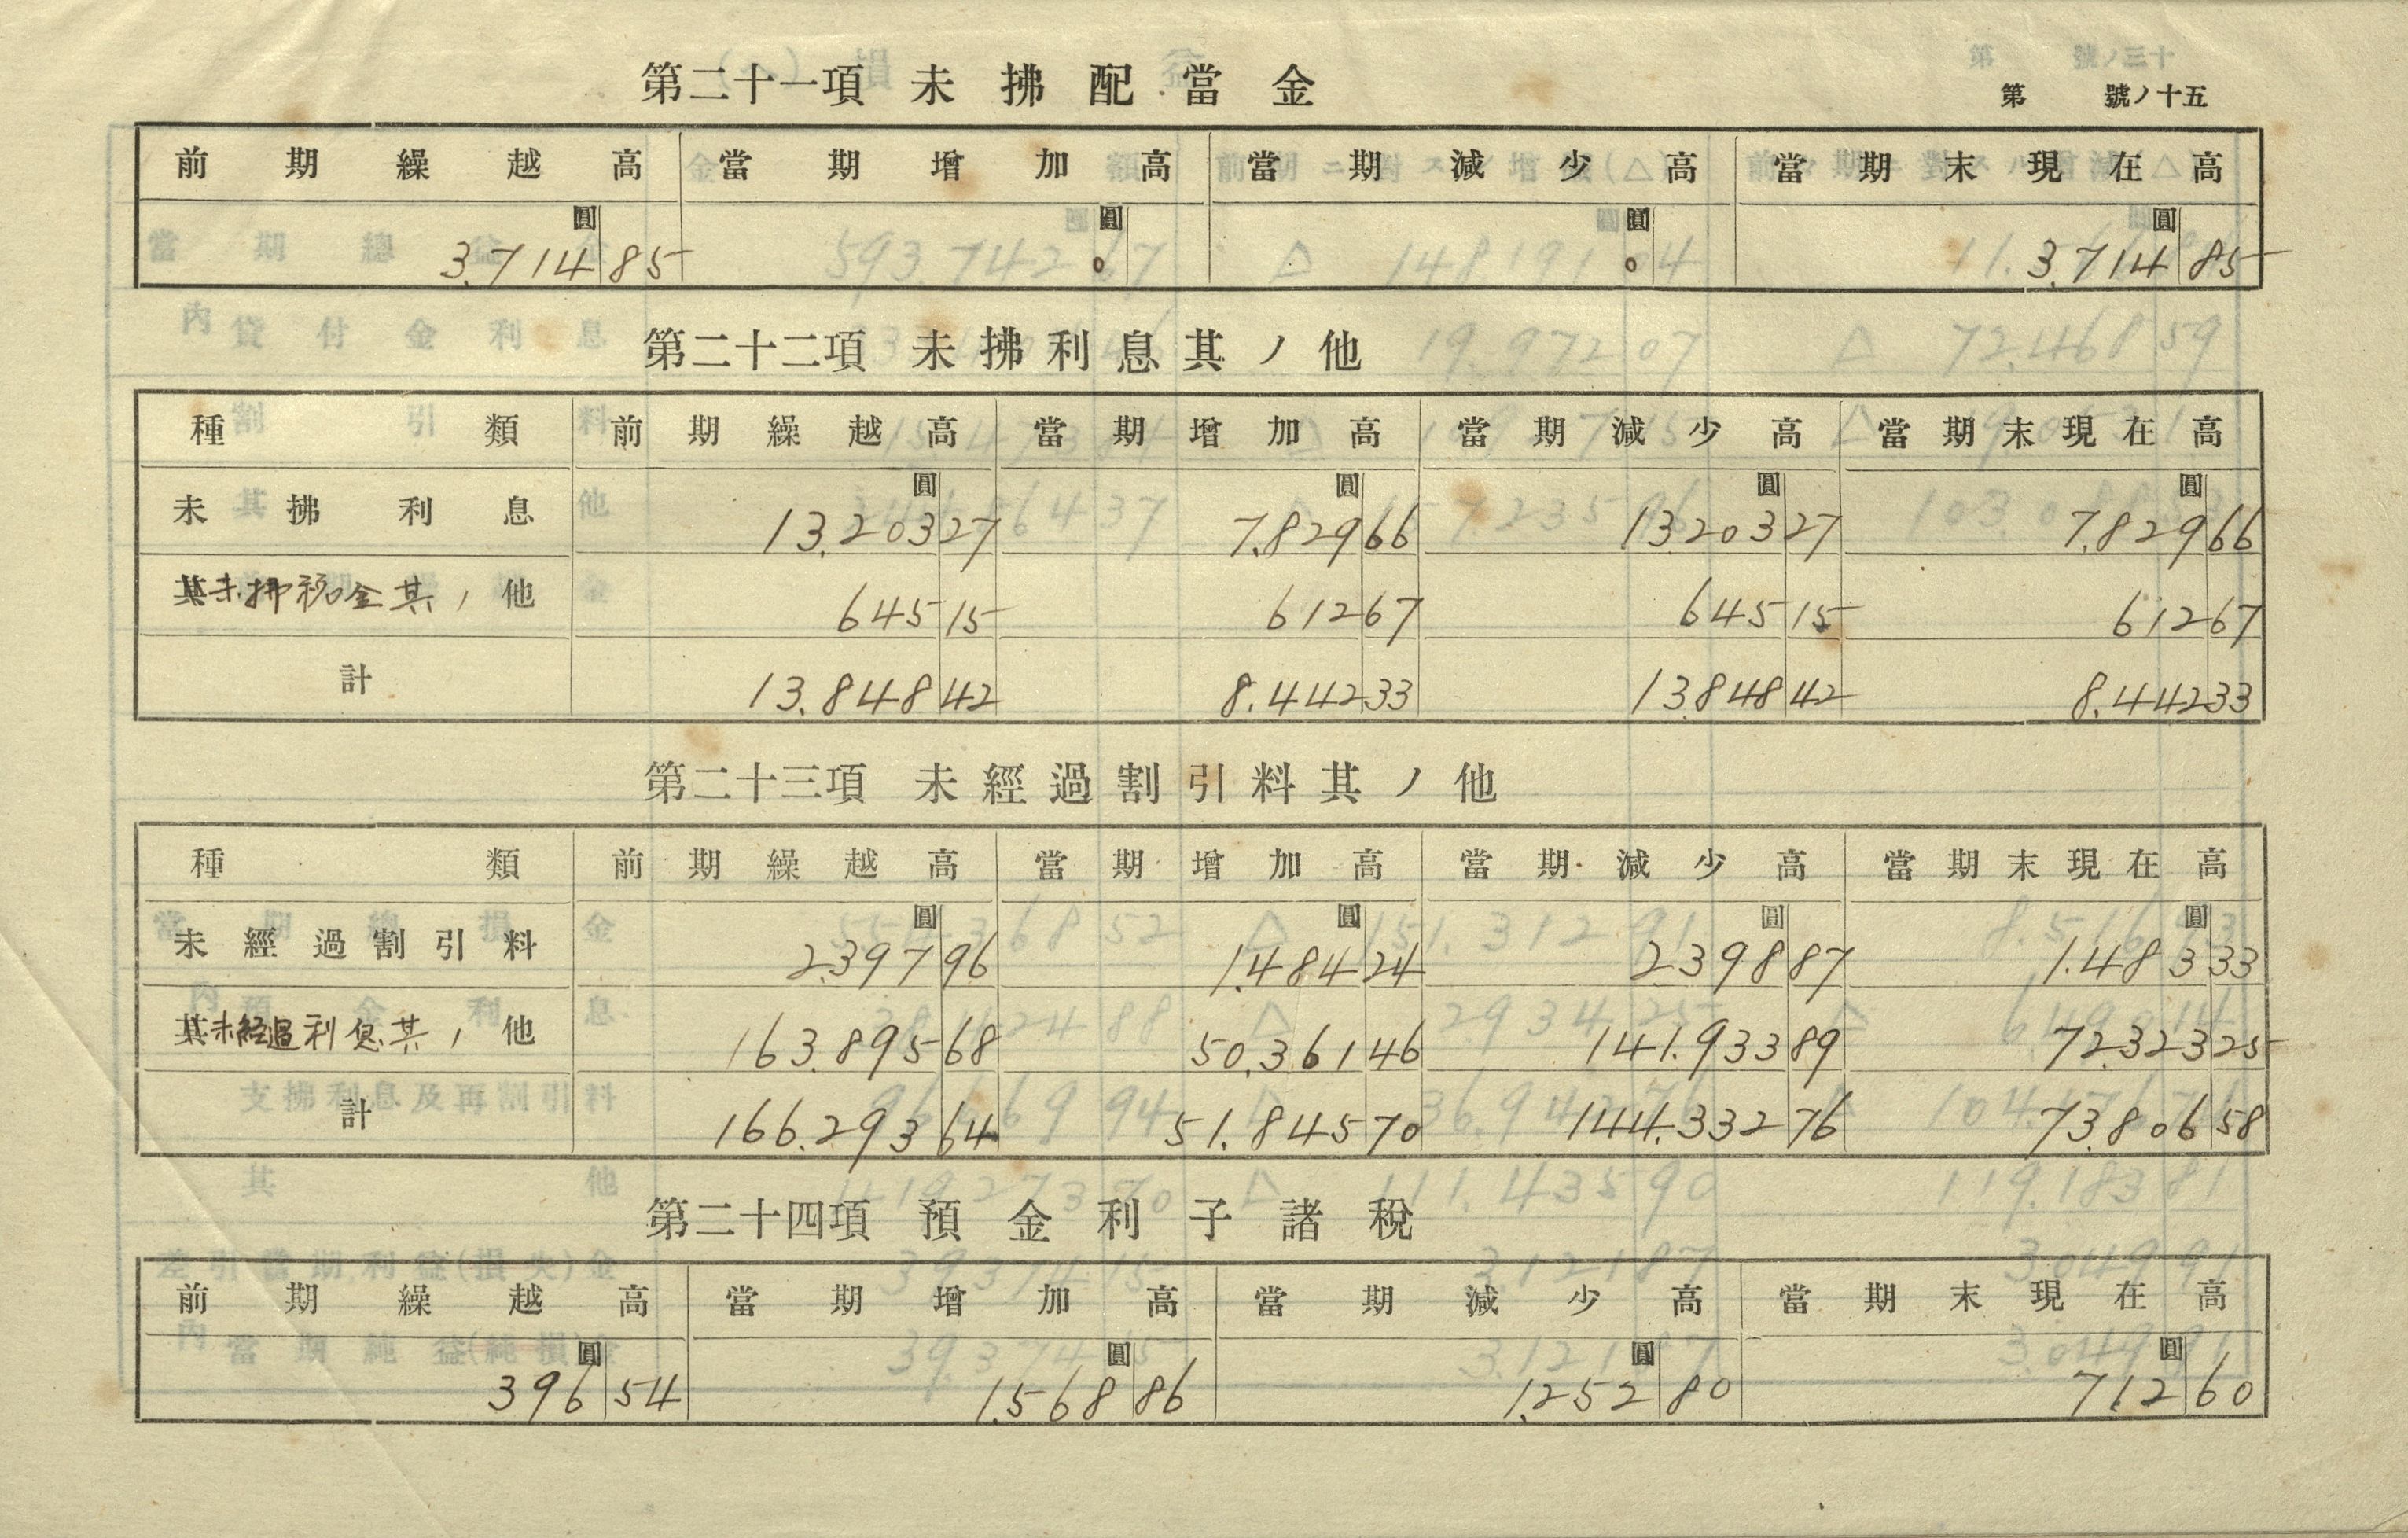 第　號ノ十五
第二十一項 未拂配當金
前期繰越高 當期增加高 當期減少高 當期末現在高
圓 圓 圓 圓
3,714 85 0 0 3,714 85
第二十二項 未拂利息其ノ他
種類 前期繰越高 當期增加高 當期減少高 當期末現在高
圓 圓 圓 圓
未拂利息 13,203 27 7,829 66 13,203 27 7,829 66
未拂税金其ノ他 645 15 612 67 645 15 612 67
計 13,848 42 8,442 33 13,848 42 8,442 33
第二十三項 未經過割引料其ノ他
種類 前期繰越高 當期增加高 當期減少高 當期末現在高
圓 圓 圓 圓
未經過割引料 2,397 96 1,484 24 2,398 87 1,483 33
未経過利息其ノ他 163,895 68 50,361 46 141,933 89 72,323 25
計 166,293 64 51,845 70 144,332 76 73,806 58
第二十四項 預金利子諸稅
前期繰越高 當期增加高 當期減少高 當期末現在高
圓 圓 圓 圓
396 54 1,568 86 1,252 80 712 60